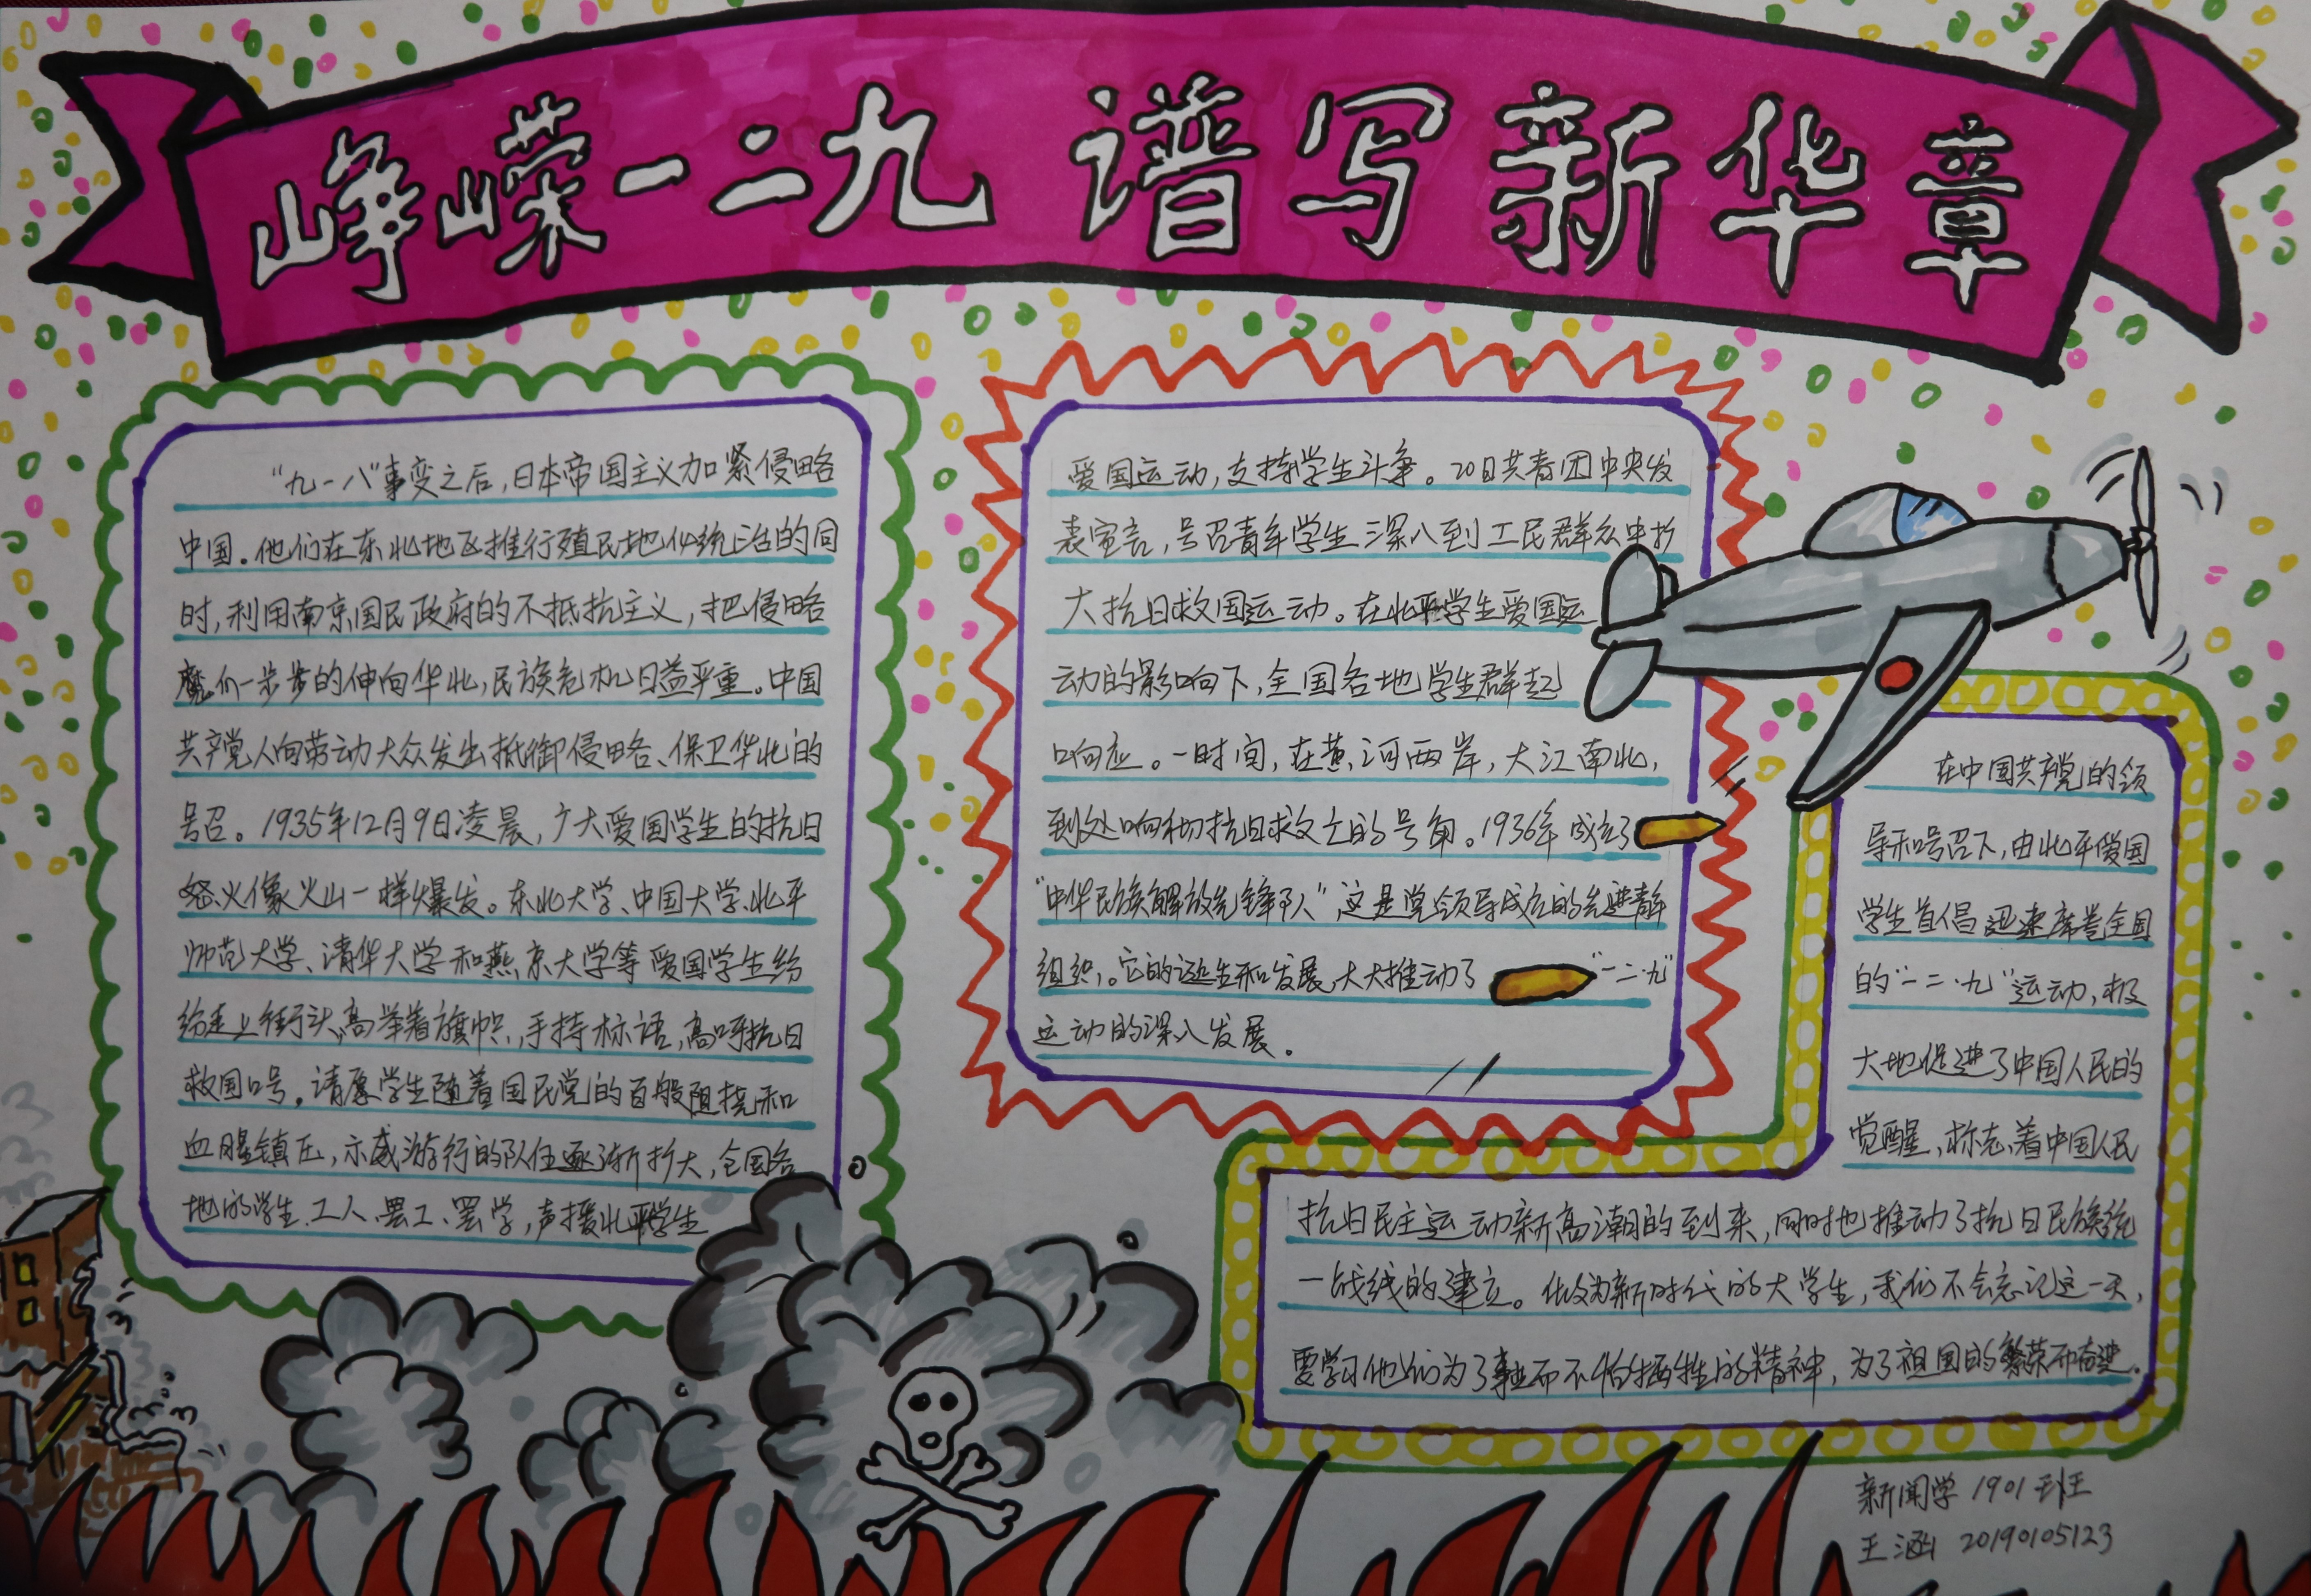 峥嵘一二九 谱写新华章
“九一八”事变之后，日本帝国主义加紧侵略
中国。他们在东北地区推行殖民地化统治的同
时，利用南京国民政府的不抵抗主义，把侵略
魔爪一步步的伸向华北，民族危机日益严重。中国
共产党人向劳动大众发出抵御侵略、保卫华北的
号召。1935年12月9日凌晨，广大爱国学生的抗日
怒火像火山一样爆发。东北大学、中国大学、北平
师范大学、清华大学和燕京大学等爱国学生纷
纷走上街头，高举着旗帜，手持标语，高呼抗日
救国口号。请愿学生随着国民党的百般阻挠和
血腥镇压，示威游行的队伍逐渐扩大，全国各
地的学生、工人、罢工、罢学，声援北平学生
爱国运动，支持学生斗争。20日共青团中央发
表宣言，号召青年学生深入到工民群众中扩
大抗日救国运动。在北平学生爱国运
动的影响下，全国各地学生群起
响应。一时间，在黄河两岸，大江南北，
到处响彻抗日救亡的号角。1936年成立了
“中华民族解放先锋队”，这是党领导成立的先进青年
组织。它的诞生和发展，大大推动了“一二·九”
运动的深入发展。
在中国共产党的领
导和号召下，由北平爱国
学生首倡迅速席卷全国
的“一二·九”运动，极
大地促进了中国人民的
觉醒，标志着中国人民
抗日民主运动新高潮的到来，同时也推动了抗日民族统
一战线的建立。作为新时代的大学生，我们不会忘记这一天，
要学习他们为了事业而不怕牺牲的精神，为了祖国的繁荣而奋进。
新闻学1901班
王涵 20190105123